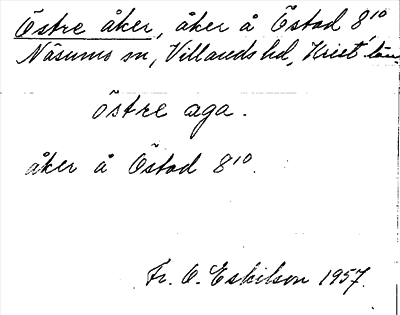 Östre åker, åker å Östad 8¹⁰
Näsums sn, Villands hd, Krist. län
östre aga.
åker å Östad 8¹⁰.
Fr. O. Eskilson 1957.